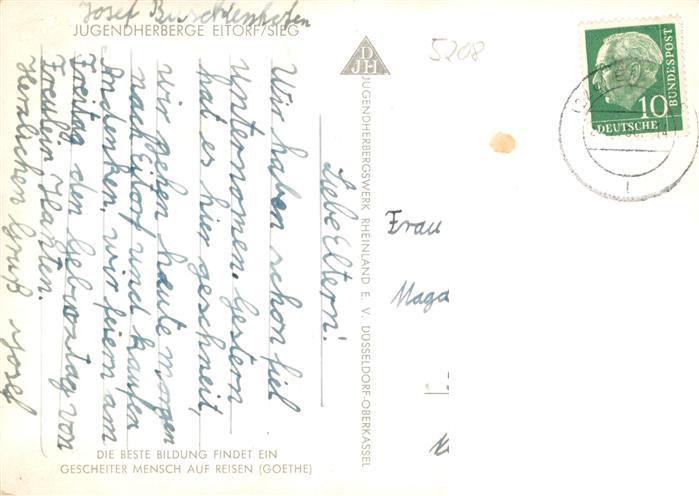 Josef
JUGENDHERBERGE EITORF/SIEG
Liebe Eltern!
Wir haben schon fiel
unternomen. Gestern
hat es hier geschneit,
wir gehen haute morgen
nach Eitorf und kaufen
Andenken. wir feiern am
Freitag den Gebortztag von
Freulein Hanten.
Herzlichen Gruß Josef
DIE BESTE BILDUNG FINDET EIN
GESCHEITER MENSCH AUF REISEN (GOETHE)
DJH
JUGENDHERBERGSWERK RHEINLAND E. V. DÜSSELDORF-OBERKASSEL
5208
10
DEUTSCHE
BUNDESPOST
Frau
Magd